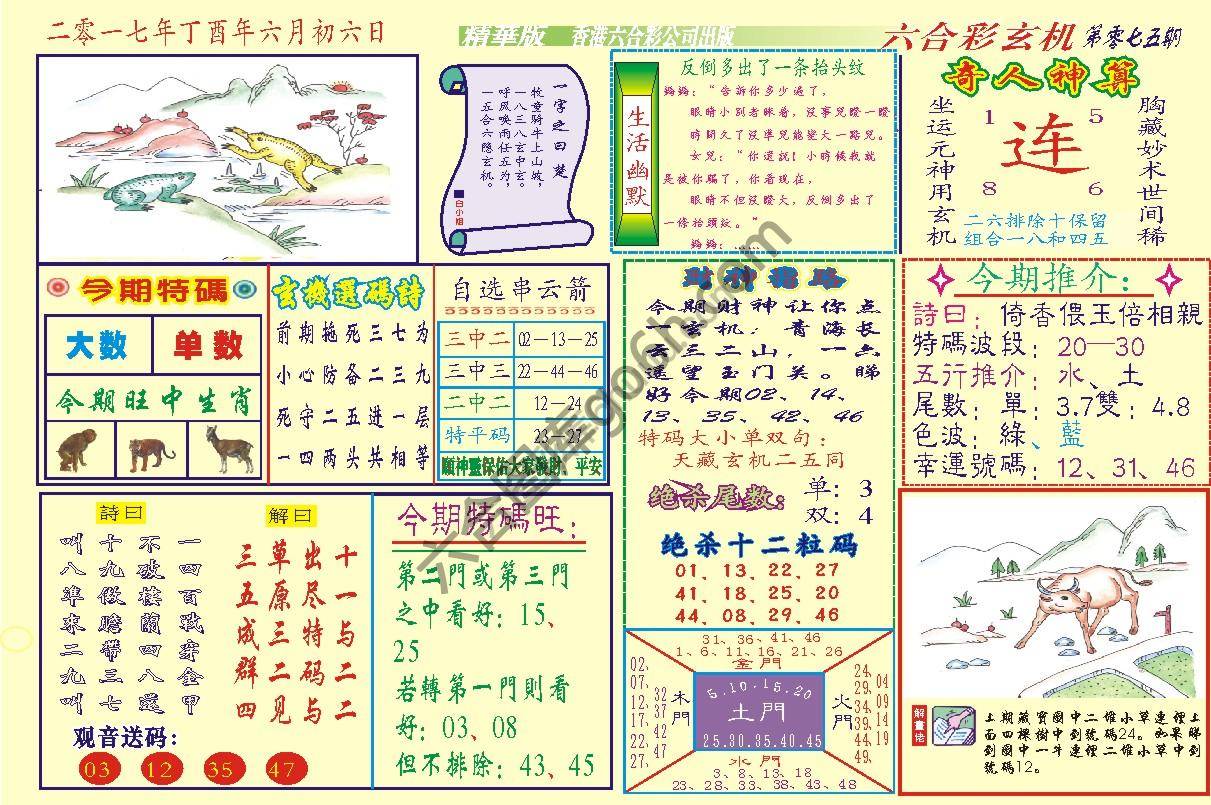 二零一七年丁酉年六月初六日
精華版 香港六合彩公司出版
六合彩玄机 第零七五期
一字之曰楚
牧童骑牛上山坡，
一八三八玄中玄。
呼风唤雨任五为，
一五合六隐玄机。
白小姐
生活幽默
反倒多出了一条抬头纹
編編：“告訴你多少遍了，
眼睛小别老眯着，没事兒瞪一瞪
時間久了没準兒能變大一路兒。
女兒：“你還説！小時候我就
是被你騙了，你看現在，
眼睛不但没瞪大，反倒多出了
一條抬頭紋。”
編編：……
奇人神算
坐运元神用玄机
1 5
连
8 6
胸藏妙术世间稀
二六排除十保留
组合一八和四五
今期特碼
大数 单数
今期旺中生肖
玄機選碼詩
前期拖死三七为
小心防备二三九
死守二五进一层
一四两头共相等
自选串云箭
三中二 02—13—25
三中三 22—44—46
二中二 12—24
特平码 23—27
願神靈保佑大家發財、平安
財神指路
今期财神让你点
一玄机：青海长
云三二山，一六
遥望玉门关。睇
好今期02、14、
13、35、42、46
特码大小单双句：
天藏玄机二五同
绝杀尾数： 单：3
双：4
绝杀十二粒码
01、13、22、27
41、18、25、20
44、08、29、46
今期推介：
詩曰：倚香偎玉倍相親
特碼波段：20—30
五行推介：水、土
尾數：單：3.7雙：4.8
色波：綠、藍
幸運號碼：12、31、46
詩曰
一四百戰穿金甲
不破楼蘭四八還
十九做膽帶三七
叫八準來二九叫
解曰
十一与二二
出尽特码与
草原三二见
三五成群四
观音送码：
03 12 35 47
今期特碼旺：
第二門或第三門
之中看好：15、
25
若轉第一門則看
好：03、08
但不排除：43、45
31、36、41、46
1、6、11、16、21、26
金門
02、07、12、17、22、27、
32、37、42、47
木門
5.10.15.20
土門
25.30.35.40.45
火門
24、29、34、39、44、49、
04、09、14、19
水門
3、8、13、18
23、28、33、38、43、48
解畫佬
上期藏寶圖中二堆小草連裡上
面四棵樹中到號碼24。如果睇
到圖中一牛連裡二堆小草中到
號碼12。
六合图库go6h.com